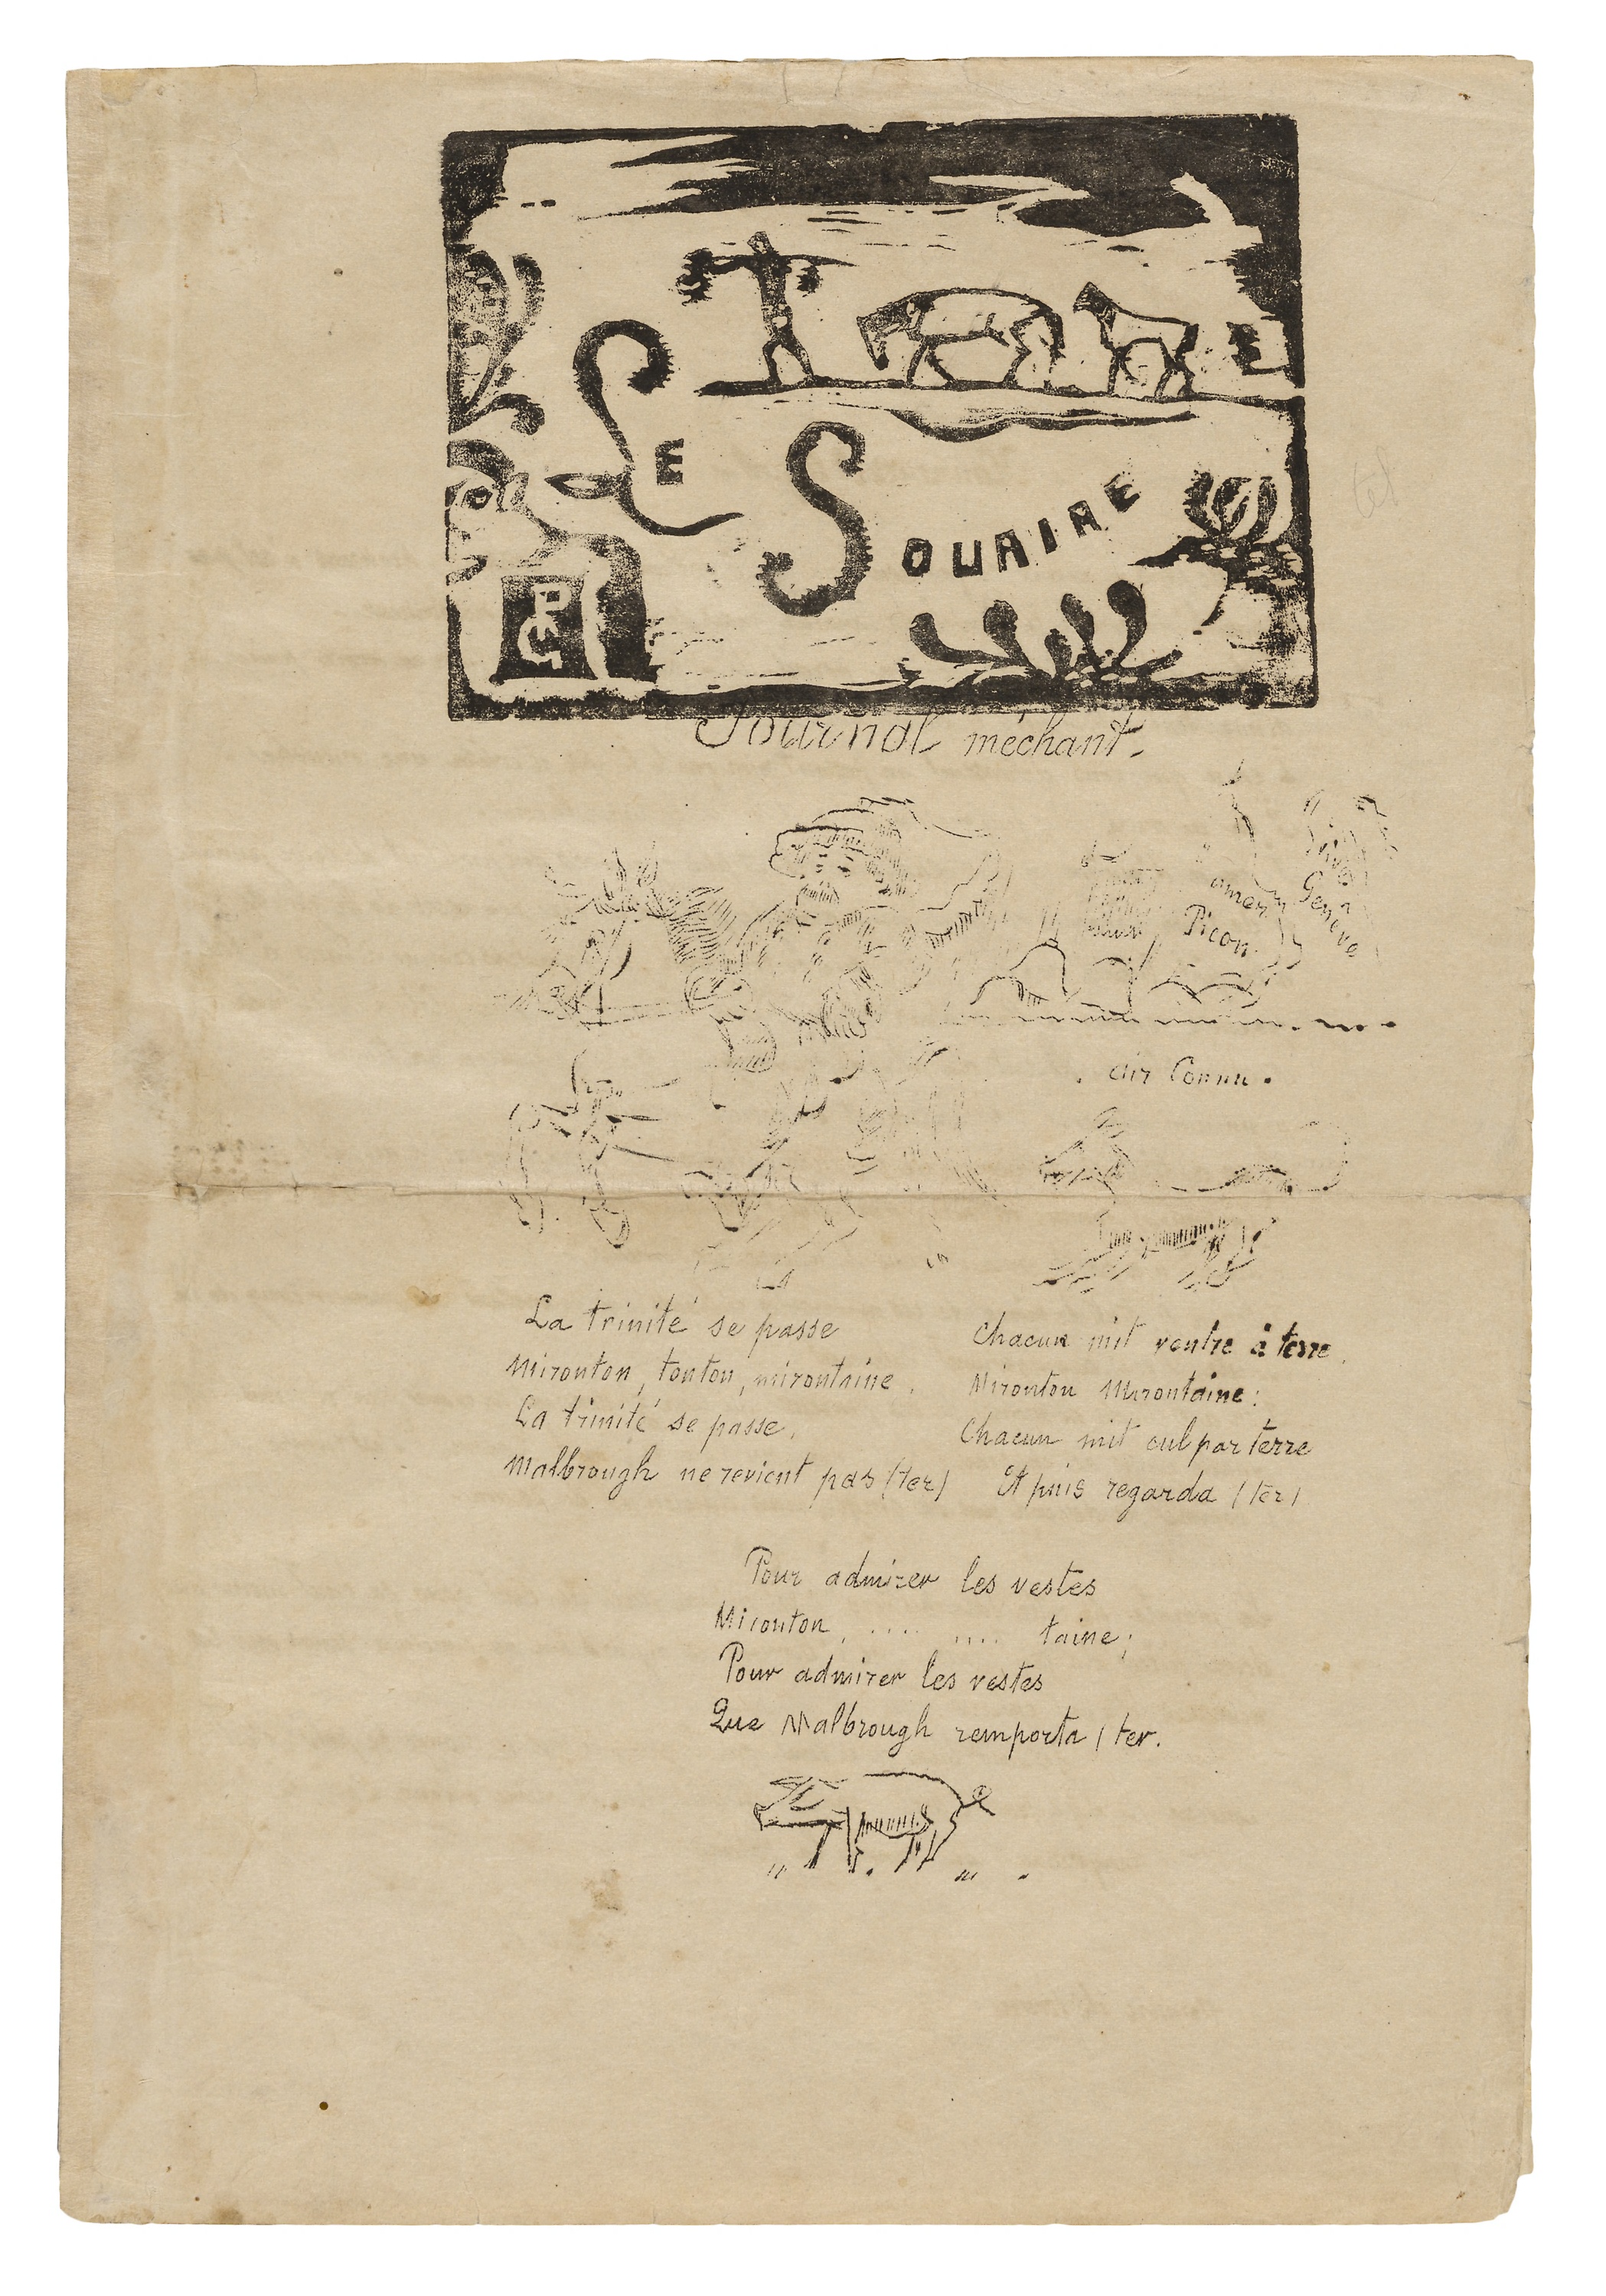 LE
SOURIRE
PGO
Journal méchant.
amer
Picon
Genève
air Connu.
La trinité se passe
Mironton, tonton, mirontaine.
La trinité se passe,
Malbrough ne revient pas (ter)
Chacun mit ventre à terre.
Mironton Mirontaine:
Chacun mit cul par terre
Et puis regarda (ter)
Pour admirer les vestes
Mironton, .... .... taine;
Pour admirer les vestes
Que Malbrough remporta (ter.